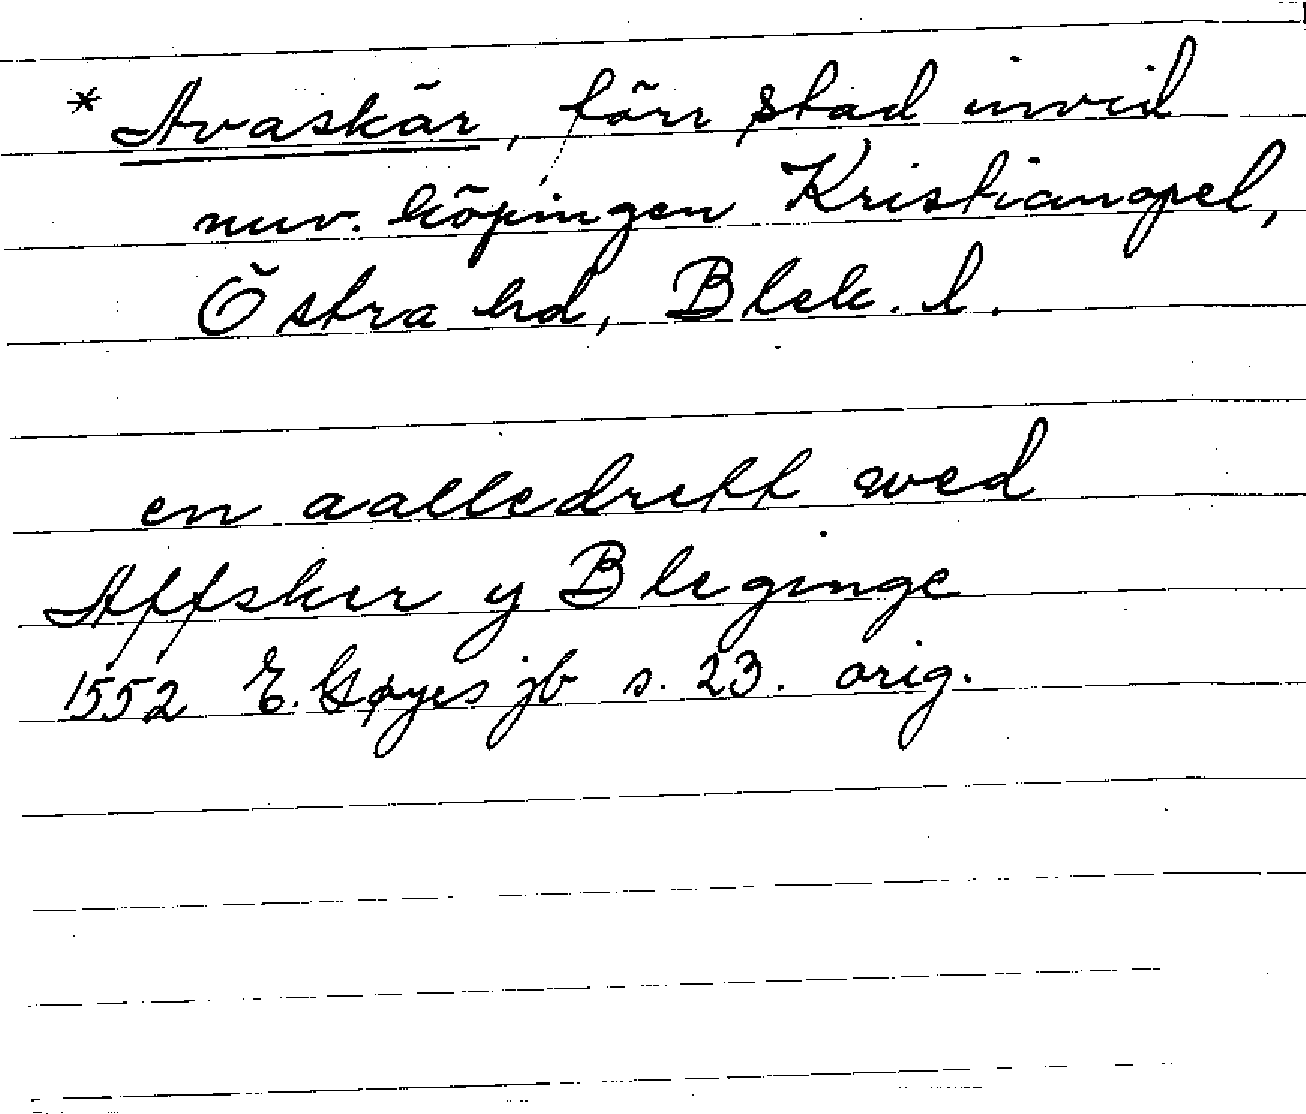 * Avaskär, förr stad invid
nuv. köpingen Kristianopel,
Östra hd, Blek. l.
en aalledrett wed
Affsker y Bleginge
1552 E. Gøyes jb s. 23. orig.